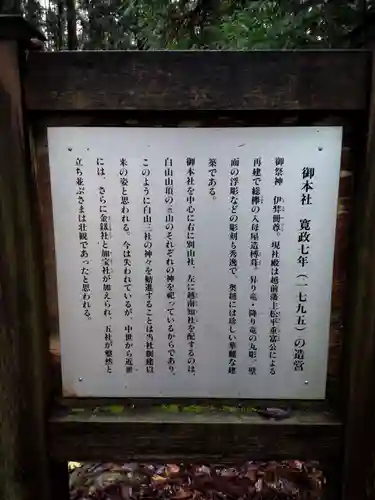 御本社 寛政七年(一七九五)の造営
御祭神 伊弉冊尊。現社殿は越前藩主松平重富公による
再建で総欅の入母屋造榑葺。昇り竜・降り竜の丸彫、壁
面の浮彫などの彫刻も秀逸で、奥越には珍しい華麗な建
築である。
御本社を中心に右に別山社、左に越南知社を配するのは、
白山山頂の三山のそれぞれの神を祀っているからであり、
このように白山三社の神々を勧進することは当社創建以
来の姿と思われる。今は失われているが、中世から近世
には、さらに金剱社と加宝社が加えられ、五社が整然と
立ち並ぶさまは壮観であったと思われる。